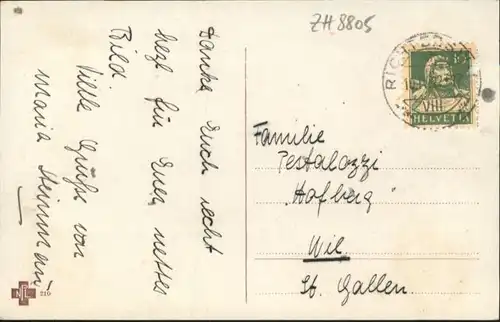 ZH 8805
Danke Euch recht
herzl für Euer nettes
Bild.
Viele Grüße von
Maria
RICHTERSWIL
VIII
10
HELVETIA
Familie
Pestalozzi
"Hofberg"
Wil
St. Gallen
210